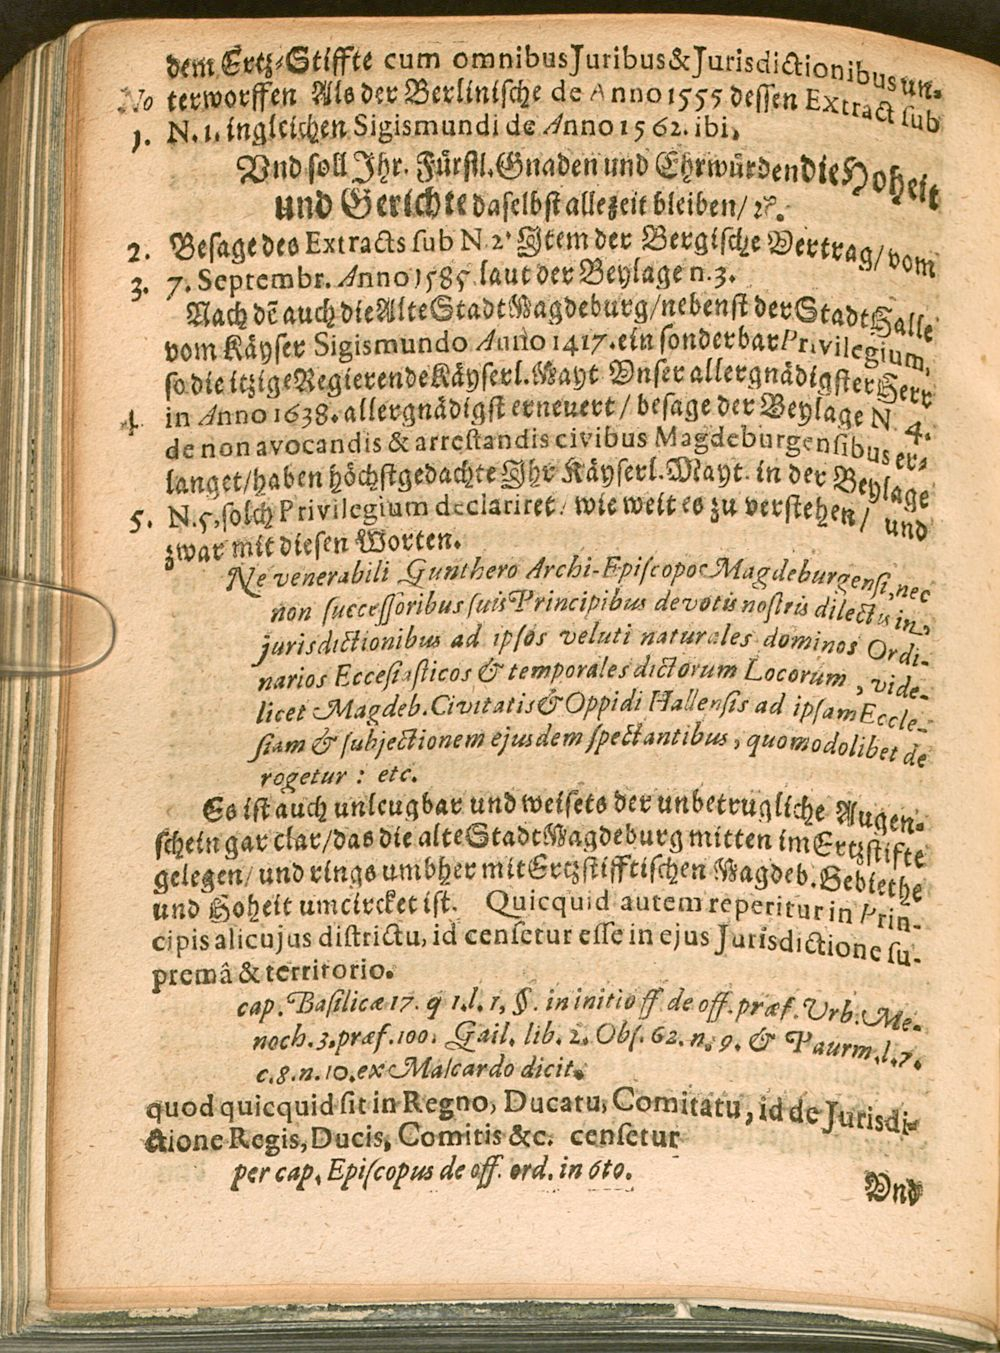 dem Ertz-Stiffte cum omnibus Juribus & Jurisdictionibus un-
No terworffen Als der Berlinische de Anno 1555 dessen Extract sub
1. N. 1. ingleichen Sigismundi de Anno 1562. ibi,
Vnd soll Ihr. Fürstl. Gnaden und Ehrwürden die Hoheit
und Gerichte daselbst allezeit bleiben / ꝛc.
2. Besage des Extracts sub N 2' Item der Bergische Vertrag / vom
3. 7. Septembr. Anno 1585 laut der Beylage n. 3.
Nach dẽ auch die Alte Stadt Magdeburg / nebenst der Stadt Halle
vom Käyser Sigismundo Anno 1417. ein sonderbar Privilegium,
so die itzige Regierende Käyserl. Mayt Vnser allergnädigster Herr
4. in Anno 1638. allergnädigst erneuert / besage der Beylage N. 4.
de non avocandis & arrestandis civibus Magdeburgensibus er-
langet / haben höchstgedachte Ihr Käyserl. Mayt. in der Beylage
5. N. 5, solch Privilegium declariret / wie weit es zu verstehen / und
zwar mit diesen Worten.
Ne venerabili Gunthero Archi-Episcopo Magdeburgensi, nec
non successoribus suis Principibus devotis nostris dilectis in
jurisdictionibus ad ipsos veluti naturales dominos Ordi-
narios Eccesiasticos & temporales dictorum Locorum, vide-
licet Magdeb. Civitatis & Oppidi Hallensis ad ipsam Eccle-
siam & subjectionem ejusdem spectantibus, quomodolibet de
rogetur : etc.
Es ist auch unleugbar und weisets der unbetrugliche Augen-
schein gar clar / das die alte Stadt Magdeburg mitten im Ertzstifte
gelegen / und rings umbher mit Ertzstifftischen Magdeb. Gebiethe
und Hoheit umcircket ist. Quicquid autem reperitur in Prin-
cipis alicujus districtu, id censetur esse in ejus Jurisdictione su-
premâ & territorio.
cap. Basilicæ 17. q 1. l. 1, §. in initio ff de off. præf. Urb. Me-
noch. 3. præf. 100. Gail. lib. 2. Obs. 62. n. 9. & Paurm. l. 7.
c. 8. n. 10. ex Mascardo dicit.
quod quicquid sit in Regno, Ducatu, Comitatu, id de Jurisdi-
ctione Regis, Ducis, Comitis &c. censetur
per cap. Episcopus de off. ord. in 6to.
Vnd